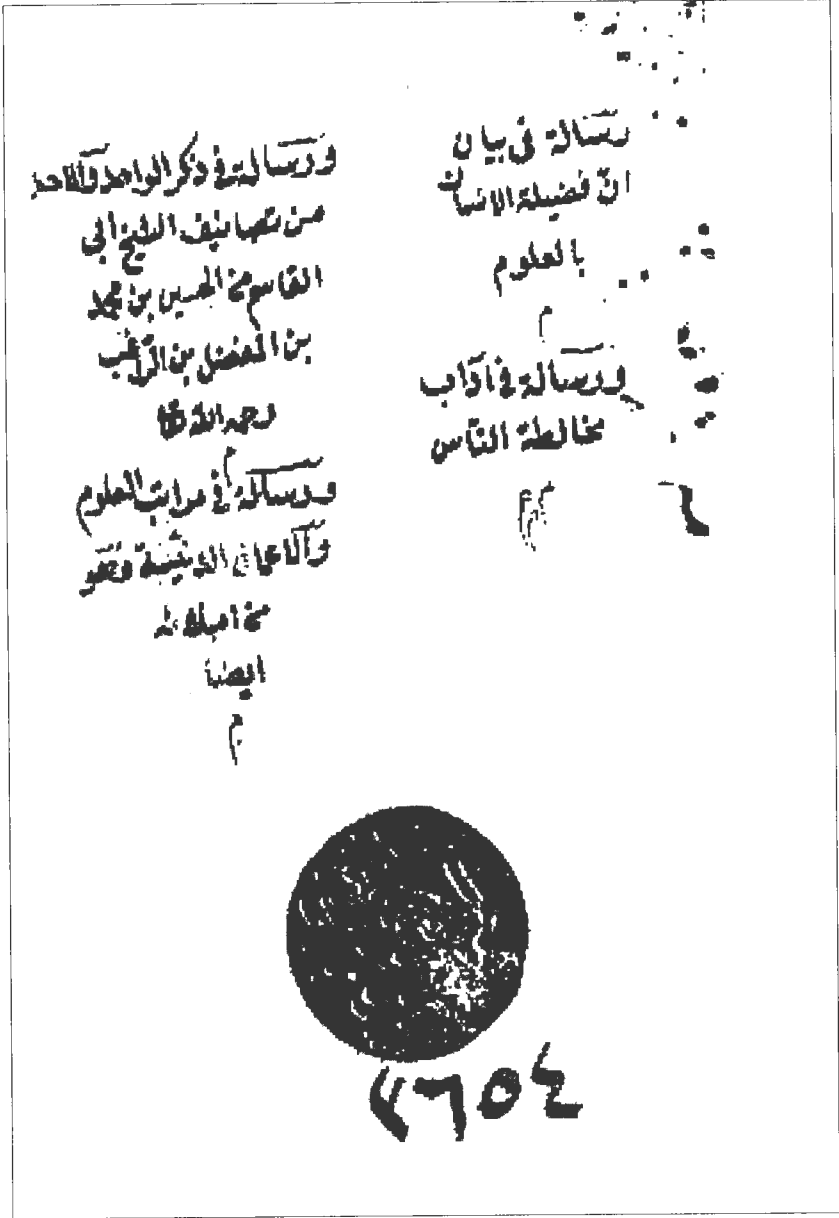 رسالة في بيان
انّ فضيلة الانسان
بالعلوم
م
ورسالة في آداب
مخالطة الناس
ورسالة في ذكر الواحد والاحد
من تصانيف الشيخ أبي
القاسم الحسين بن محمد
بن المفضل بن الرّاغب
رحمه الله
م
ورسالة في مراتب العلوم
والاعمال الدينية وهو
ايضا
م